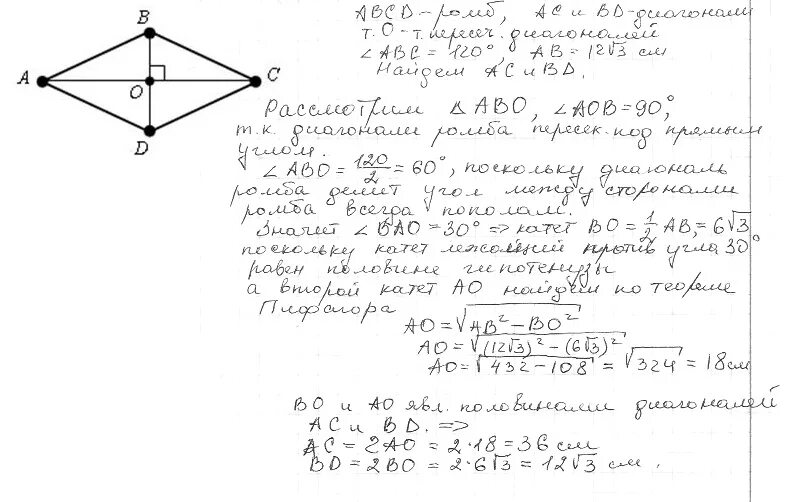 B
A
O
C
D
ABCD – ромб, AC и BD – диагонали
т. O – т. пересеч. диагоналей
∠ABC = 120°, AB = 12√3 см
Найдем AC и BD.
Рассмотрим △ABO, ∠AOB = 90°,
т.к. диагонали ромба пересек. под прямым
углом.
∠ABO = 120/2 = 60°, поскольку диагональ
ромба делит угол между сторонами
ромба всегда пополам.
Значит ∠BAO = 30° => катет BO = 1/2 AB = 6√3
поскольку катет лежащий против угла 30°
равен половине гипотенузы
а второй катет AO найдем по теореме
Пифагора
AO = √(AB² – BO²)
AO = √((12√3)² – (6√3)²)
AO = √(432 – 108) = √324 = 18 см
BO и AO явл. половинами диагоналей
AC и BD. =>
AC = 2AO = 2·18 = 36 см
BD = 2BO = 2·6√3 = 12√3 см.